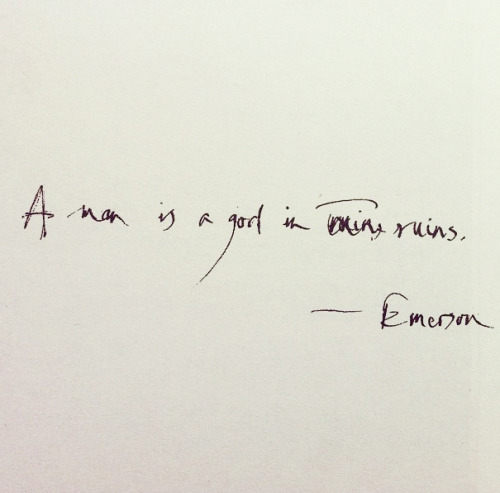 A man is a god in ruins ruins.
— Emerson